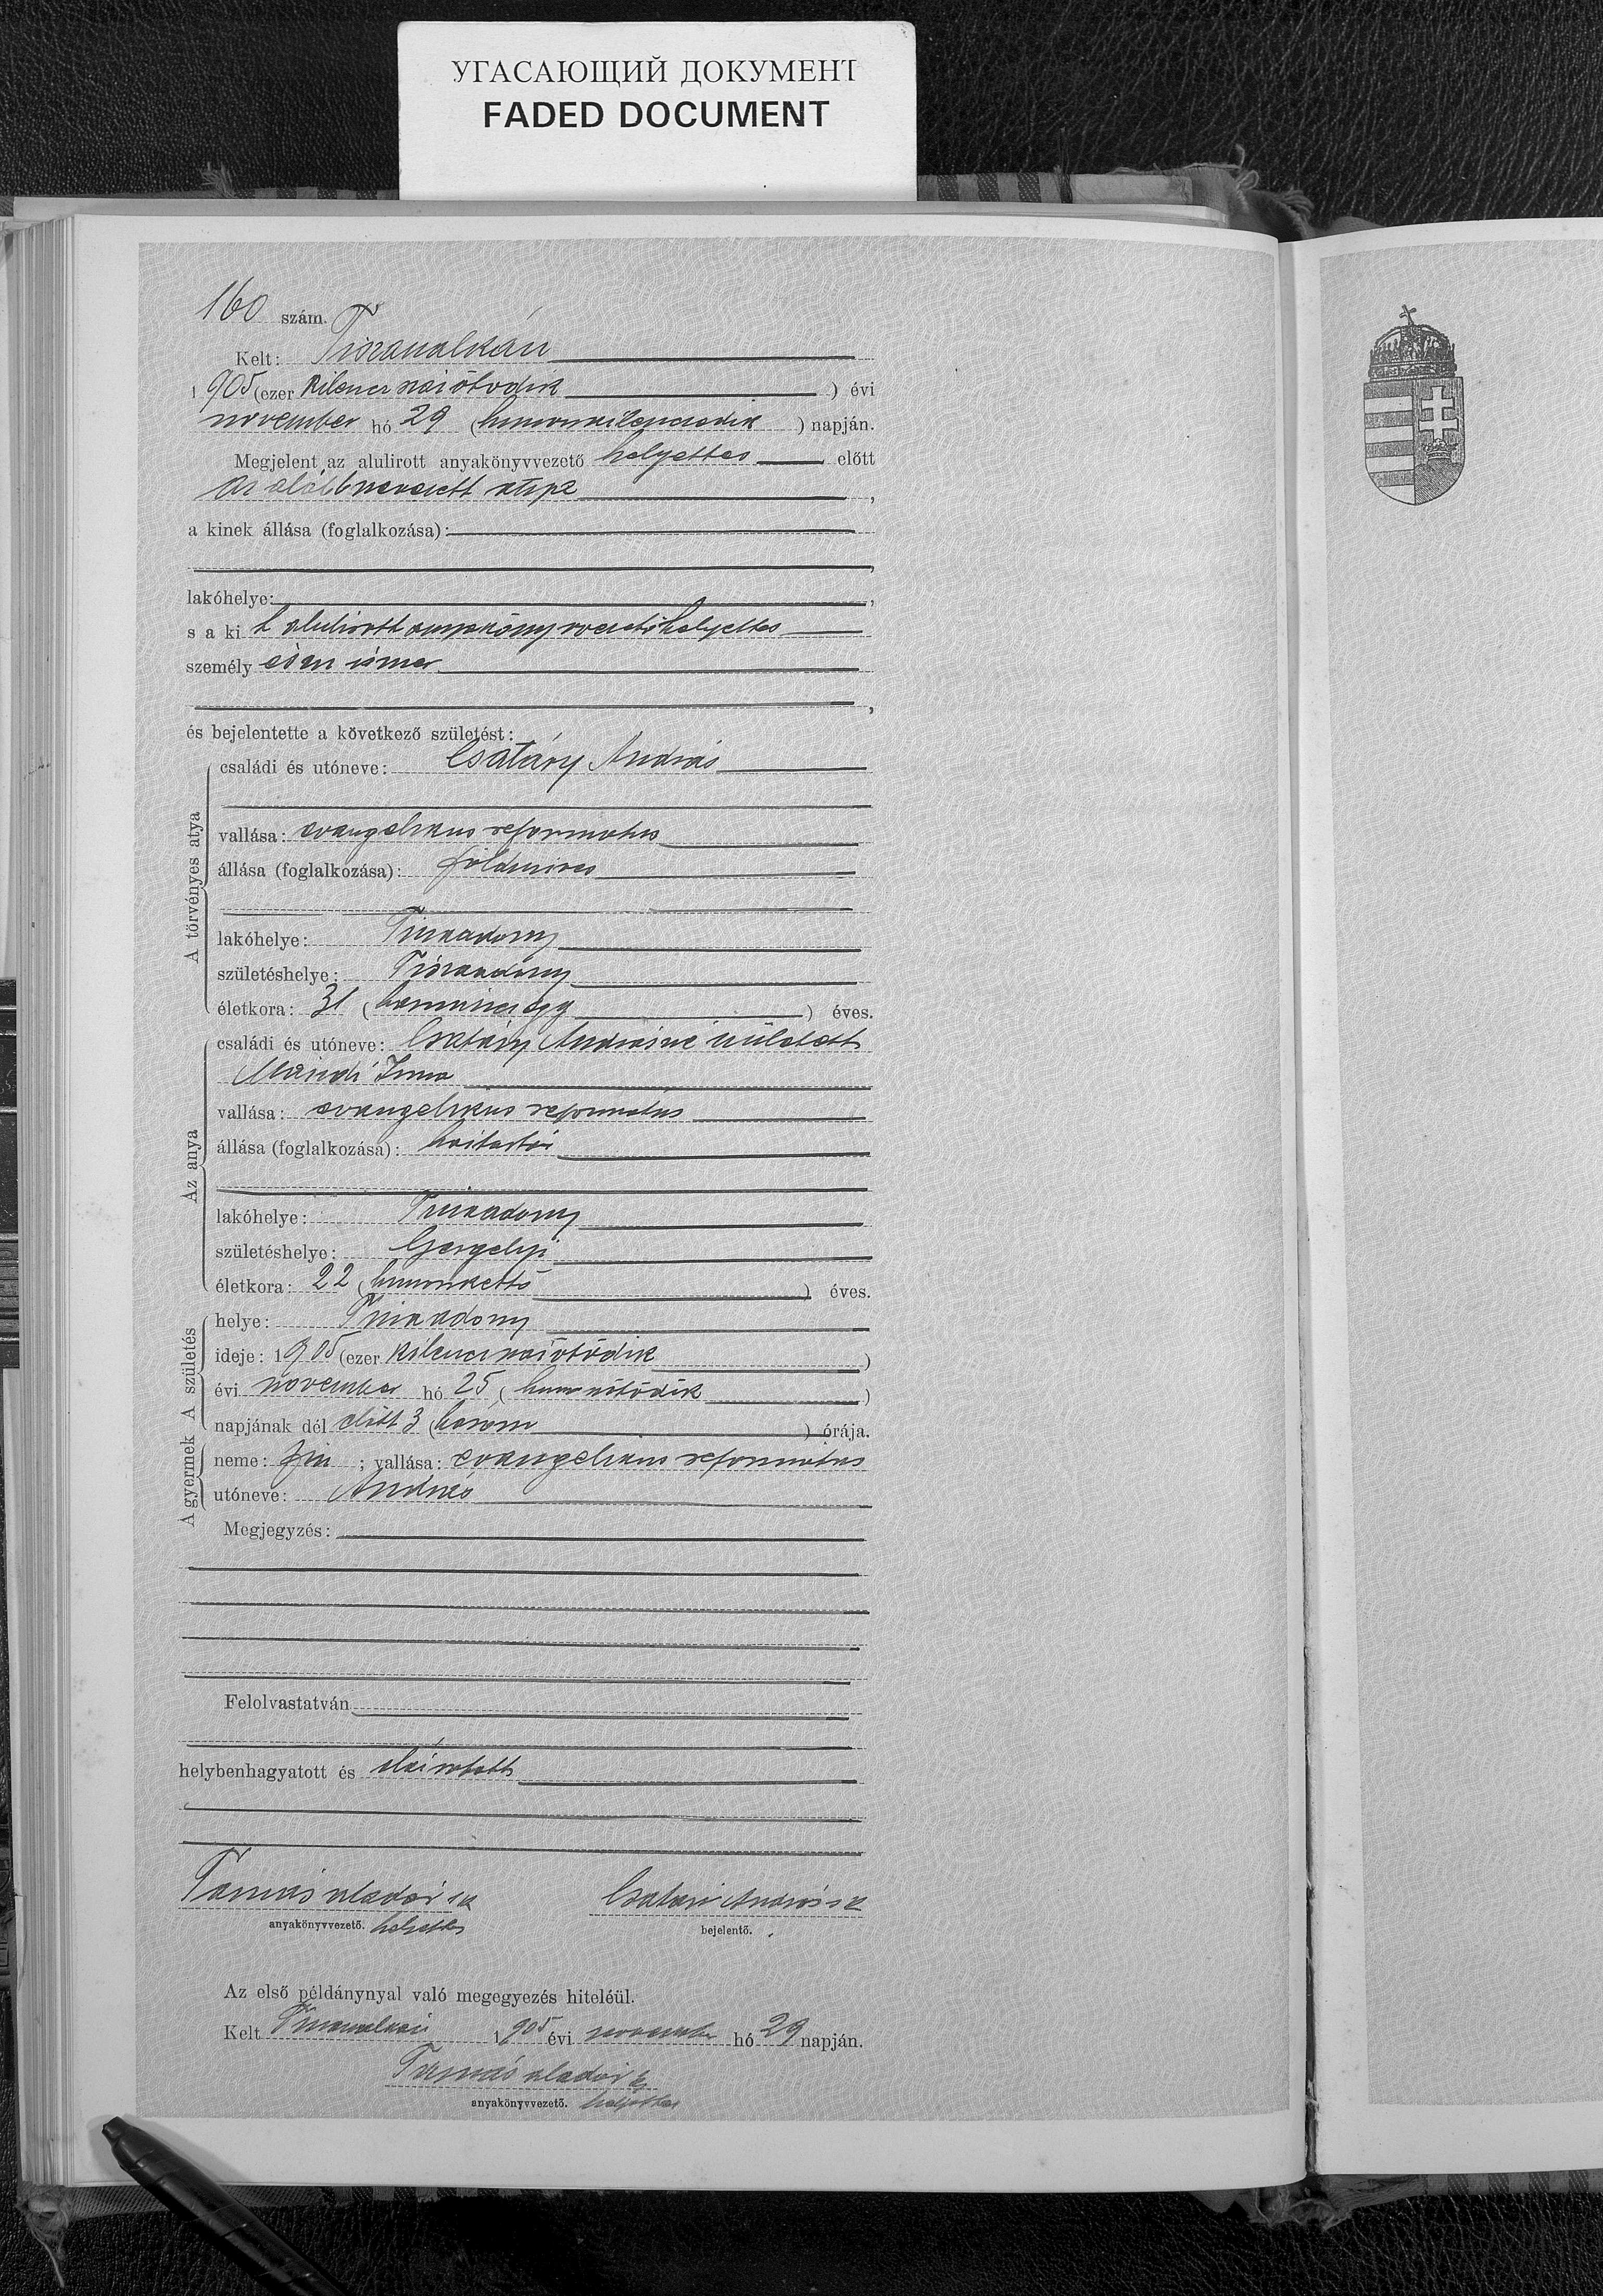 УГАСАЮЩИЙ ДОКУМЕНТ
FADED DOCUMENT
160 szám.
Kelt: Tiszasalkán
1905 (ezer kilencszázötödik) évi
november hó 29 (huszonkilencedik) napján.
Megjelent az alulirott anyakönyvvezető helyettes előtt
az alább nevezett atya,
a kinek állása (foglalkozása):
lakóhelye:
s a ki t alulirott anyakönyvvezető helyettes
személyesen ismer
és bejelentette a következő születést:
A törvényes atya
családi és utóneve: Csatáry András
vallása: evangelikus reformatus
állása (foglalkozása): földmives
lakóhelye: Tiszaadony
születéshelye: Tiszaadony
életkora: 31 (harminczegy) éves.
Az anya
családi és utóneve: Csatáry Andrásné született
Mándi Irma
vallása: evangelikus reformatus
állása (foglalkozása): háztartás
lakóhelye: Tiszaadony
születéshelye: Gergelyi
életkora: 22 (huszonkettő) éves.
A születés
helye: Tiszaadony
ideje: 1905 (ezer kilencszázötödik)
évi november hó 25 (huszonötödik)
napjának dél előtt 3 (három) órája.
A gyermek
neme: fiu; vallása: evangelikus reformatus
utóneve: András
Megjegyzés:
Felolvastatván
helybenhagyatott és aláiratott
Tamás Aladár sk Csatári András sk
anyakönyvvezető. helyettes bejelentő.
Az első példánynyal való megegyezés hiteléül.
Kelt 1905 évi november hó 29 napján.
Tamás Aladár
anyakönyvvezető. helyettes